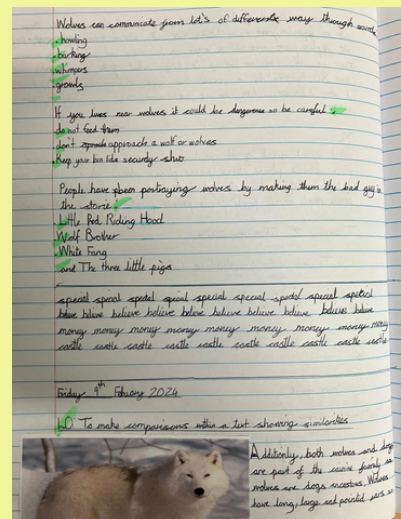 Wolves can communicate from lot's of different way through sounds
. howling
. barking
. whimpers
. growls
If you lives near wolves it could be dangerous so be careful
. do not feed them
. don't approach a wolf or wolves
. Keep your bin lids securely shut
People have been portraying wolves by making them the bad guy in
the stories
. Little Red Riding Hood
. Wolf Brother
. White Fang
and The three little pigs
special special special special special special special special special
believe believe believe believe believe believe believe believe believe
money money money money money money money money money
castle castle castle castle castle castle castle castle castle
Friday 9th February 2024
LO To make comparisons within a text showing similarities
Additionly, both wolves and dogs
are part of the canine family as
wolves are dogs ancestors. Wolves
have long, large and pointed ears